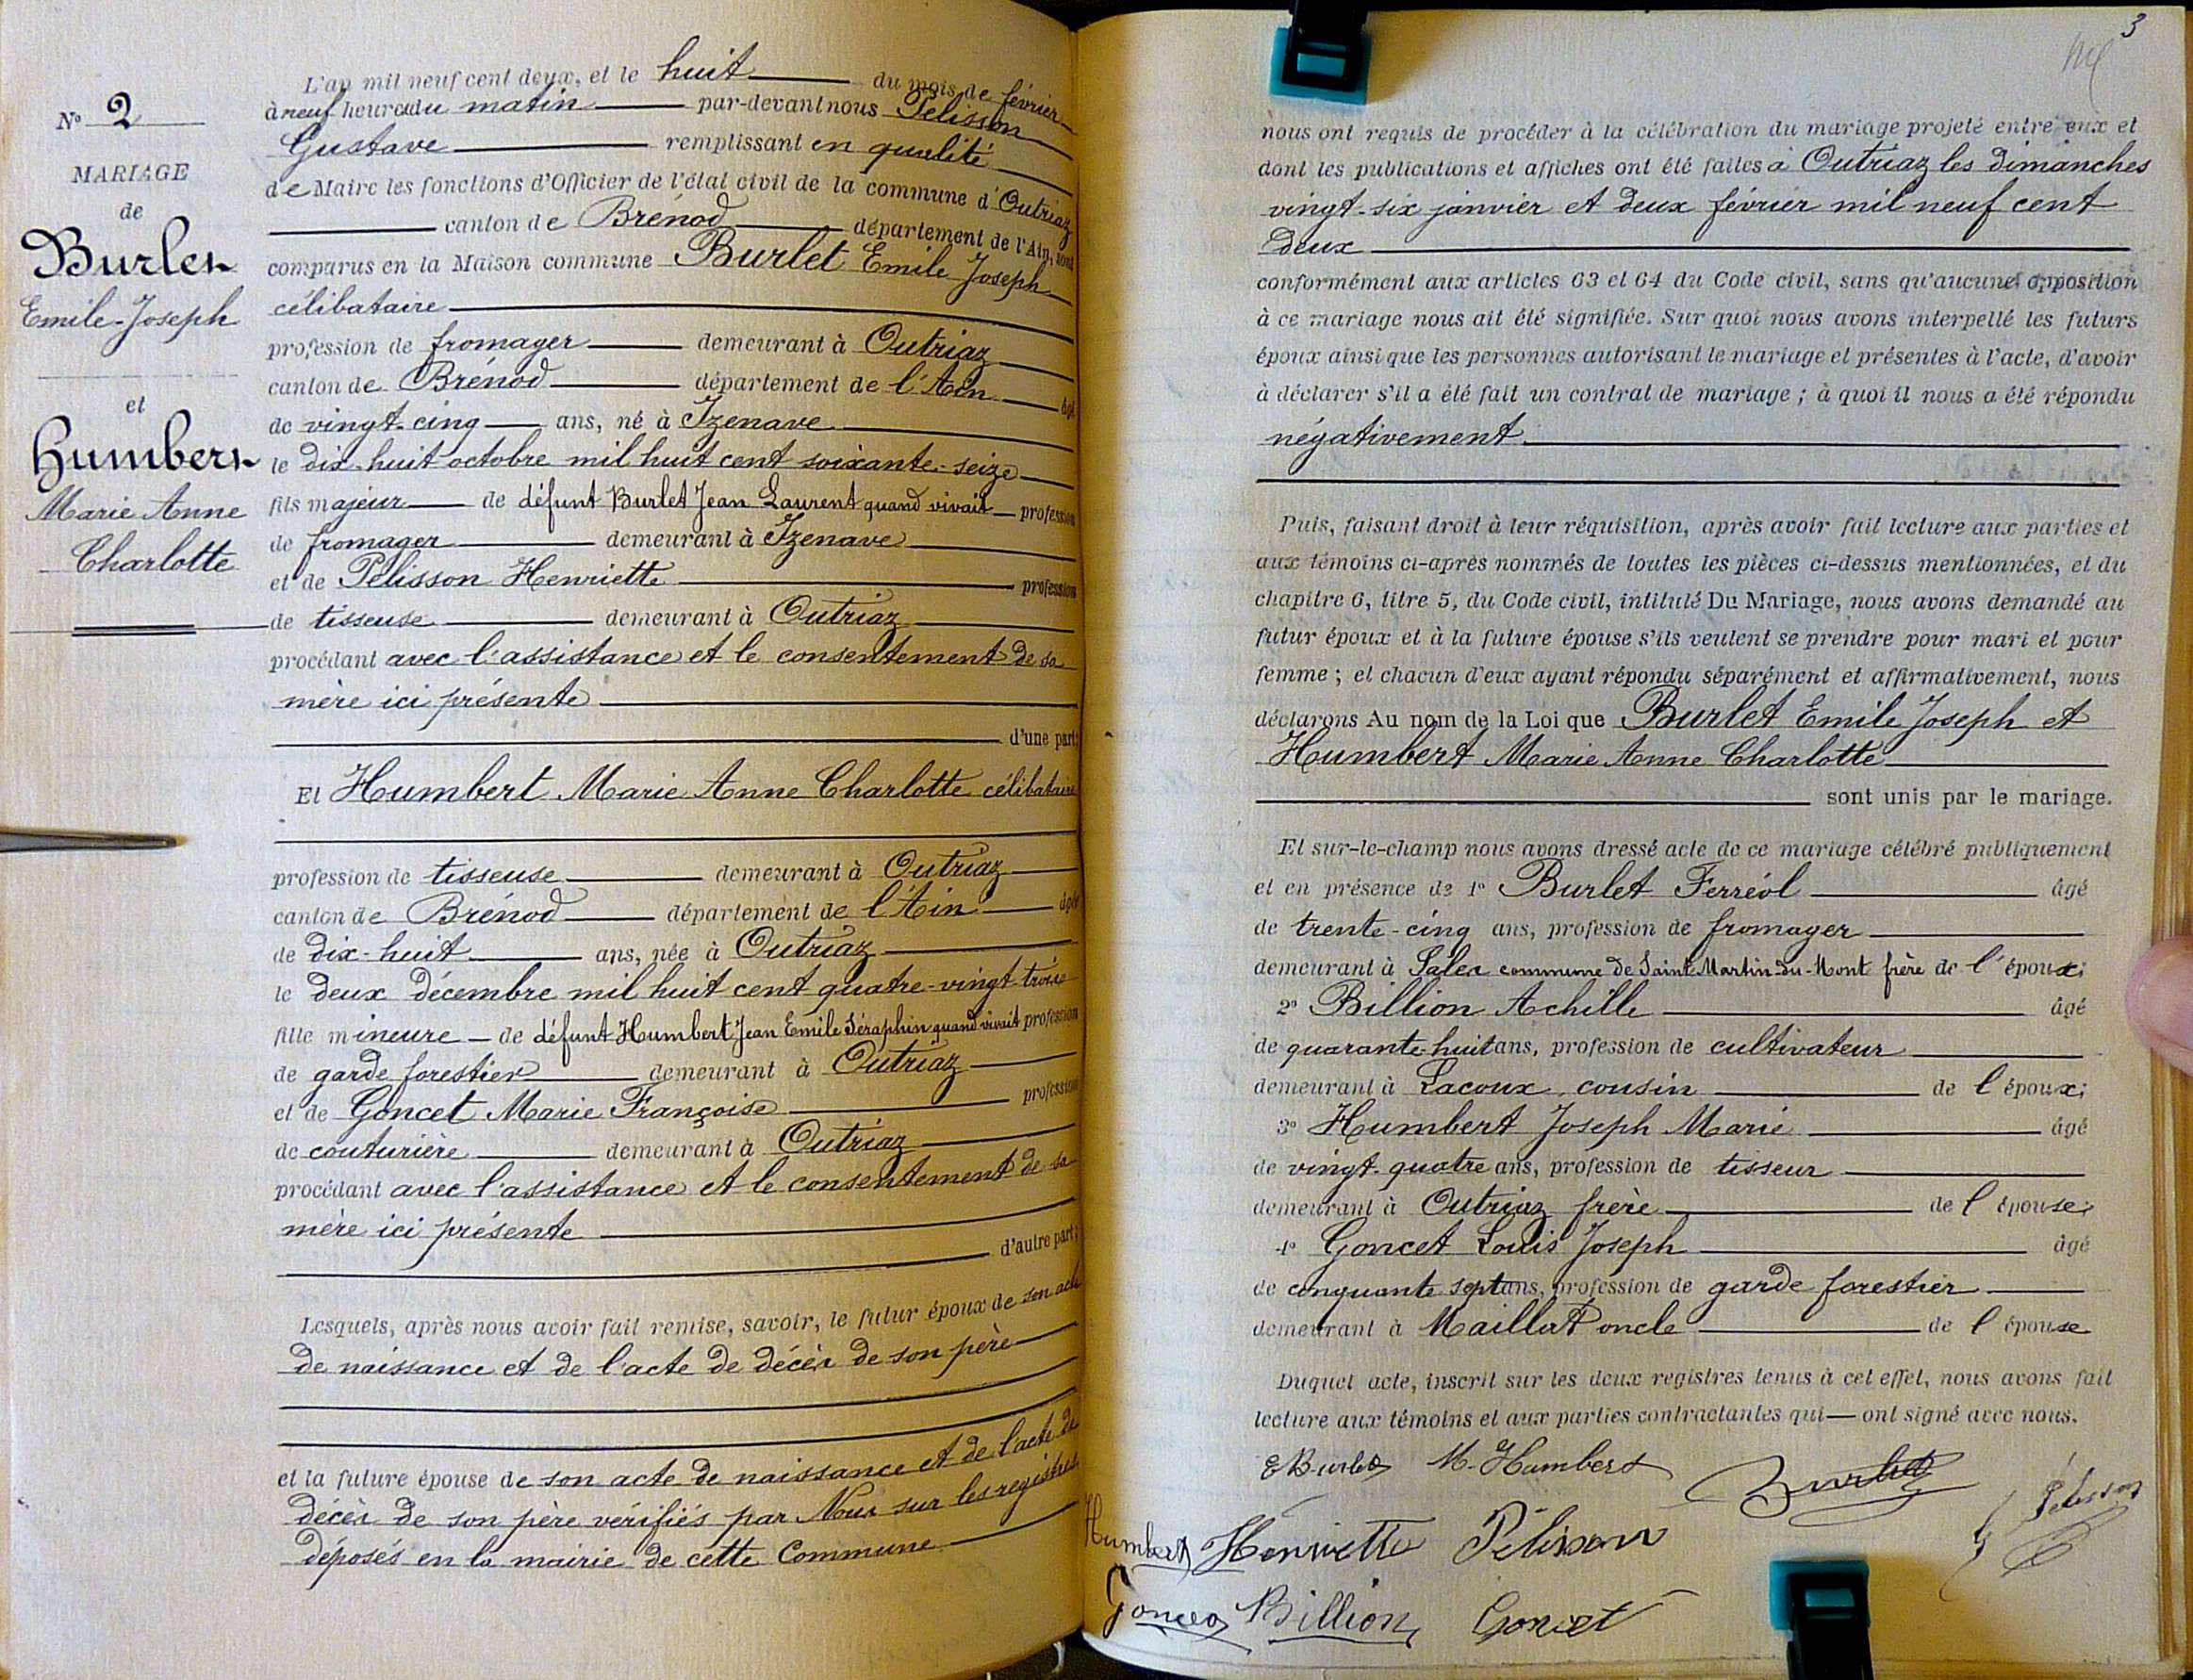 N° 2
MARIAGE
de
Burlet
Emile-Joseph
et
Humbert
Marie Anne
Charlotte
L'an mil neuf cent deux, et le huit du mois de février
à neuf heures du matin par-devant nous Pélisson
Gustave remplissant en qualité
de Maire les fonctions d'Officier de l'état civil de la commune d'Outriaz
canton de Brénod département de l'Ain, sont
comparus en la Maison commune Burlet Emile Joseph
célibataire
profession de fromager demeurant à Outriaz
canton de Brénod département de l'Ain âgé
de vingt-cinq ans, né à Izenave
le dix-huit octobre mil huit cent soixante-seize
fils majeur de défunt Burlet Jean Laurent quand vivait profession
de fromager demeurant à Izenave
et de Pélisson Henriette profession
de tisseuse demeurant à Outriaz
procédant avec l'assistance et le consentement de sa
mère ici présente
d'une part;
Et Humbert Marie Anne Charlotte célibataire
profession de tisseuse demeurant à Outriaz
canton de Brénod département de l'Ain âgée
de dix-huit ans, née à Outriaz
le deux décembre mil huit cent quatre-vingt-trois
fille mineure de défunt Humbert Jean Emile Séraphin quand vivait profession
de garde forestier demeurant à Outriaz
et de Goncet Marie Françoise profession
de couturière demeurant à Outriaz
procédant avec l'assistance et le consentement de sa
mère ici présente
d'autre part;
Lesquels, après nous avoir fait remise, savoir, le futur époux de son acte
de naissance et de l'acte de décès de son père
et la future épouse de son acte de naissance et de l'acte de
décès de son père vérifiés par Nous sur les registres
déposés en la mairie de cette Commune
3
nous ont requis de procéder à la célébration du mariage projeté entre eux et
dont les publications et affiches ont été faites à Outriaz les dimanches
vingt-six janvier et deux février mil neuf cent
deux
conformément aux articles 63 et 64 du Code civil, sans qu'aucune opposition
à ce mariage nous ait été signifiée. Sur quoi nous avons interpellé les futurs
époux ainsi que les personnes autorisant le mariage et présentes à l'acte, d'avoir
à déclarer s'il a été fait un contrat de mariage ; à quoi il nous a été répondu
négativement
Puis, faisant droit à leur réquisition, après avoir fait lecture aux parties et
aux témoins ci-après nommés de toutes les pièces ci-dessus mentionnées, et du
chapitre 6, titre 5, du Code civil, intitulé Du Mariage, nous avons demandé au
futur époux et à la future épouse s'ils veulent se prendre pour mari et pour
femme ; et chacun d'eux ayant répondu séparément et affirmativement, nous
déclarons Au nom de la Loi que Burlet Emile Joseph et
Humbert Marie Anne Charlotte
sont unis par le mariage.
Et sur-le-champ nous avons dressé acte de ce mariage célébré publiquement
et en présence de 1° Burlet Ferréol âgé
de trente-cinq ans, profession de fromager
demeurant à Salles commune de Saint-Martin-du-Mont frère de l'époux;
2° Billion Achille âgé
de quarante-huit ans, profession de cultivateur
demeurant à Lacoux, cousin de l'époux;
3° Humbert Joseph Marie âgé
de vingt-quatre ans, profession de tisseur
demeurant à Outriaz frère de l'épouse;
4° Goncet Louis Joseph âgé
de cinquante sept ans, profession de garde forestier
demeurant à Maillat oncle de l'épouse
Duquel acte, inscrit sur les deux registres tenus à cet effet, nous avons fait
lecture aux témoins et aux parties contractantes qui — ont signé avec nous.
E Burlet M. Humbert Burlet
Humbert Henriette Pélisson G Pelisson
Goncet Billion Goncet